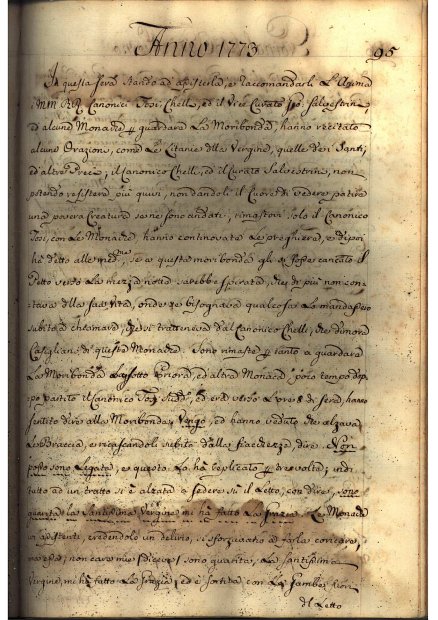 Anno 1773
95
In questa sera stando ad assisterla, e raccomandarli L'Anima
i MM: RR: Canonici Tosi, Chelli, ed il Vice Curato Salvestrini,
ed alcune Monache p guardare La Moribonda, hanno recitato
alcune Orazioni, come Le Litanie della Vergine, quelle dei Santi,
ed altre Preci; il Canonico Chelli, ed il Curato Salvestrini, non
potendo resistere più quivi, non dandoli il Cuore di vedere patire
una povera Creatura se ne sono andati; rimastovi solo il Canonico
Tosi, con Le Monache, hanno continovato Le preghiere, e di poi
ha detto alle med:me, se a questa moribonda gli si fosse cavato il
Petto verso La mezza notte sarebbe spirata, che di più non con-
tava della sua vita, onde se bisognava qualcosa Lo mandassero
subito a chiamare, che si tratteneva dal Canonico Chelli, che dimora
Casigliano di queste Monache. Sono rimaste p tanto a guardare
La Moribonda La sotto Priora, ed altra Monaca; poco tempo do-
po partito il Canonico Tosi sudd:, ed era verso L'ore 8 di sera, hanno
sentito dire alla Moribonda, Vengo, ed hanno veduto che alzava
Le Braccia, e ricascandoli subito dalla fiacchezza, dire, Non
posso sono Legata, e questo Lo ha replicato p tre volte; indi
tutto ad un tratto si è alzata a sedere su il Letto, con dire, sono
guarita La Santissima Vergine mi ha fatto La Grazia: Le Monache
ivi assistenti, credendolo un delirio, si sforzavano a farla coricare,
ma essa, non care mie (diceva) sono guarita, La Santissima
Vergine, mi ha fatto La Grazia; ed è sortita con Le Gambe fuori
del Letto